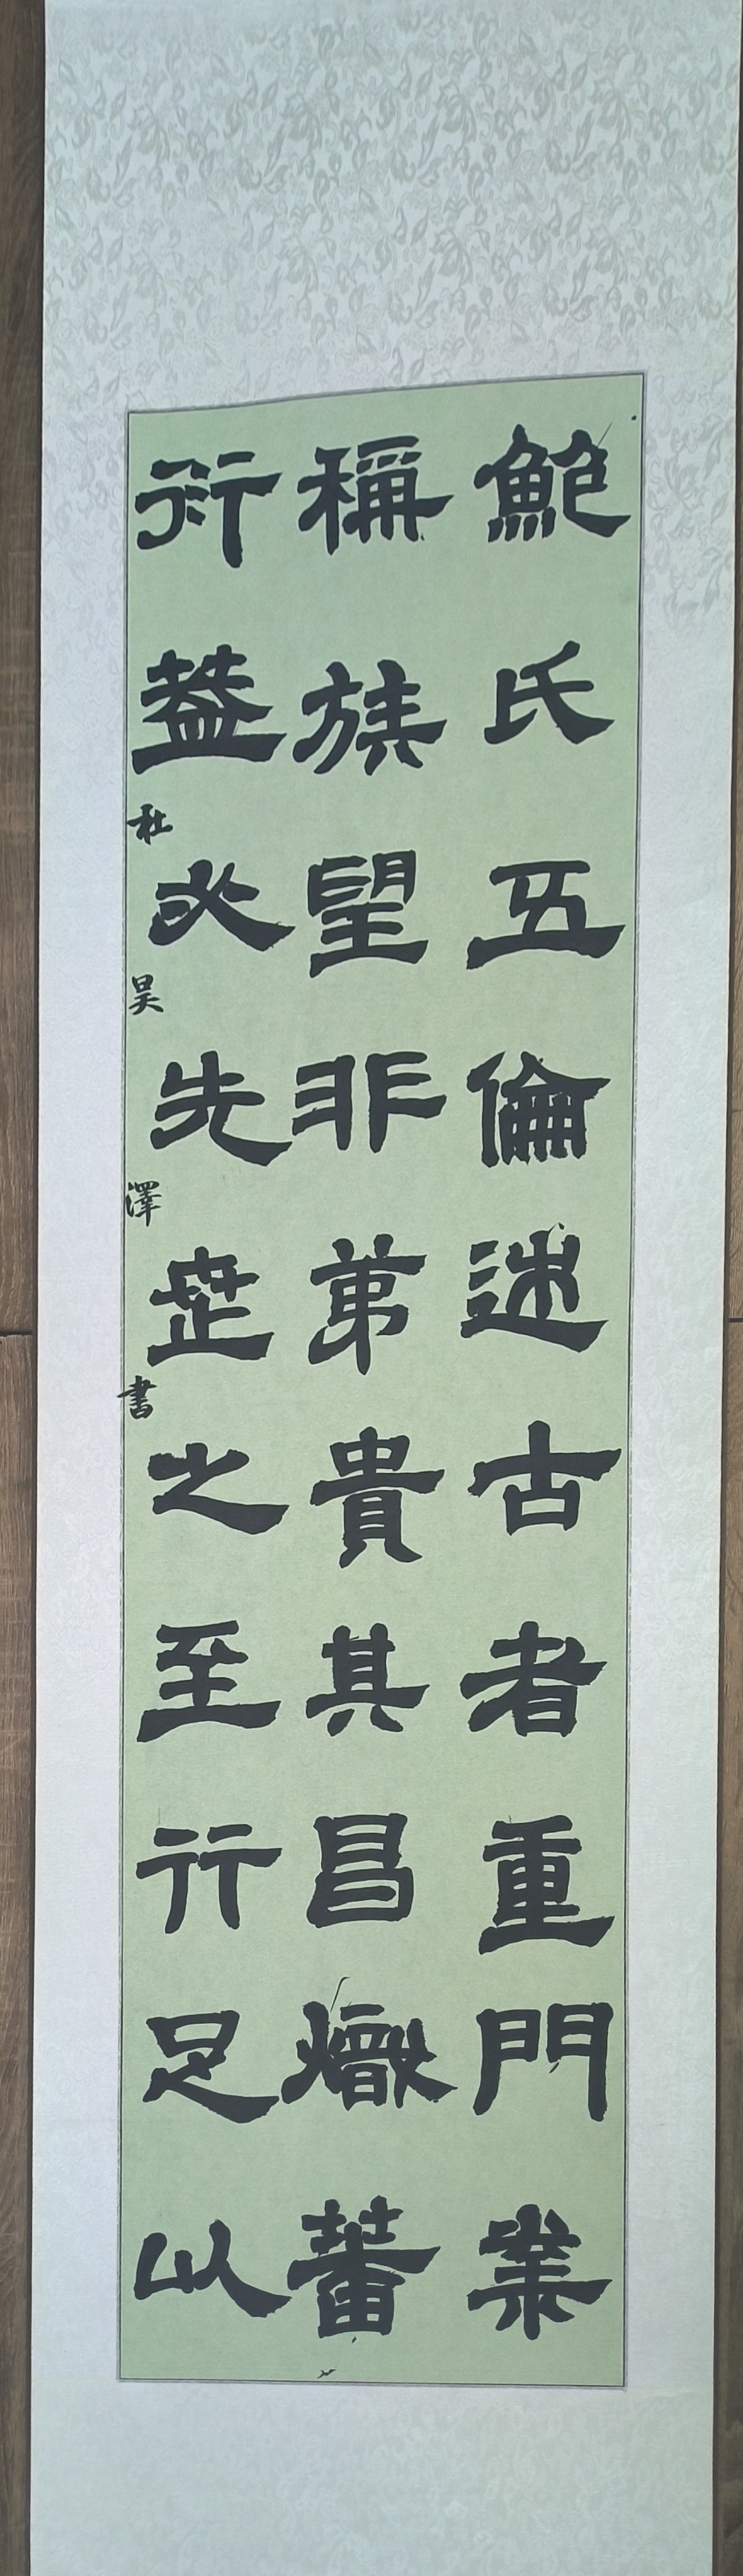 鮑氏五倫述古者重門業
稱族望非第貴其昌熾蕃
衍蓋必先世之至行足以
杜昊澤書